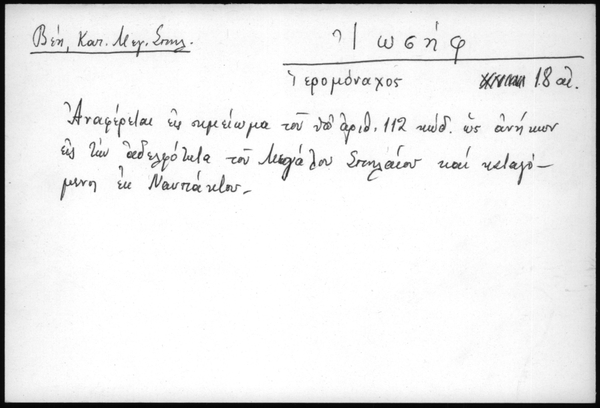 Βέη, Κατ. Μεγ. Σπηλ.
Ἰωσήφ
Ἱερομόναχος 18 αἰ.
Ἀναφέρεται εἰς σημείωμα τοῦ ὑπ' ἀριθ. 112 κώδ. ὡς ἀνήκων
εἰς τὴν ἀδελφότητα τοῦ Μεγάλου Σπηλαίου καὶ καταγό-
μενη ἐκ Ναυπάκτου.